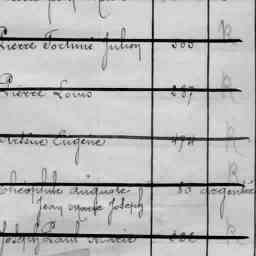 Pierre Fortuné Julien 333 R
Pierre Louis 237 R
Arsène Eugène 474 R
Théophile Auguste 30 argentré R
Jean Marie Joseph
Joseph Paul Marie R